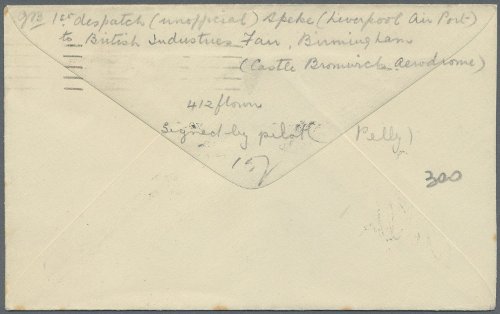 1st despatch (unofficial) Speke (Liverpool Air Port)
to British Industries Fair, Birmingham
(Castle Bromwich Aerodrome)
412 flown
Signed by pilot ( Pelly)
15/
300